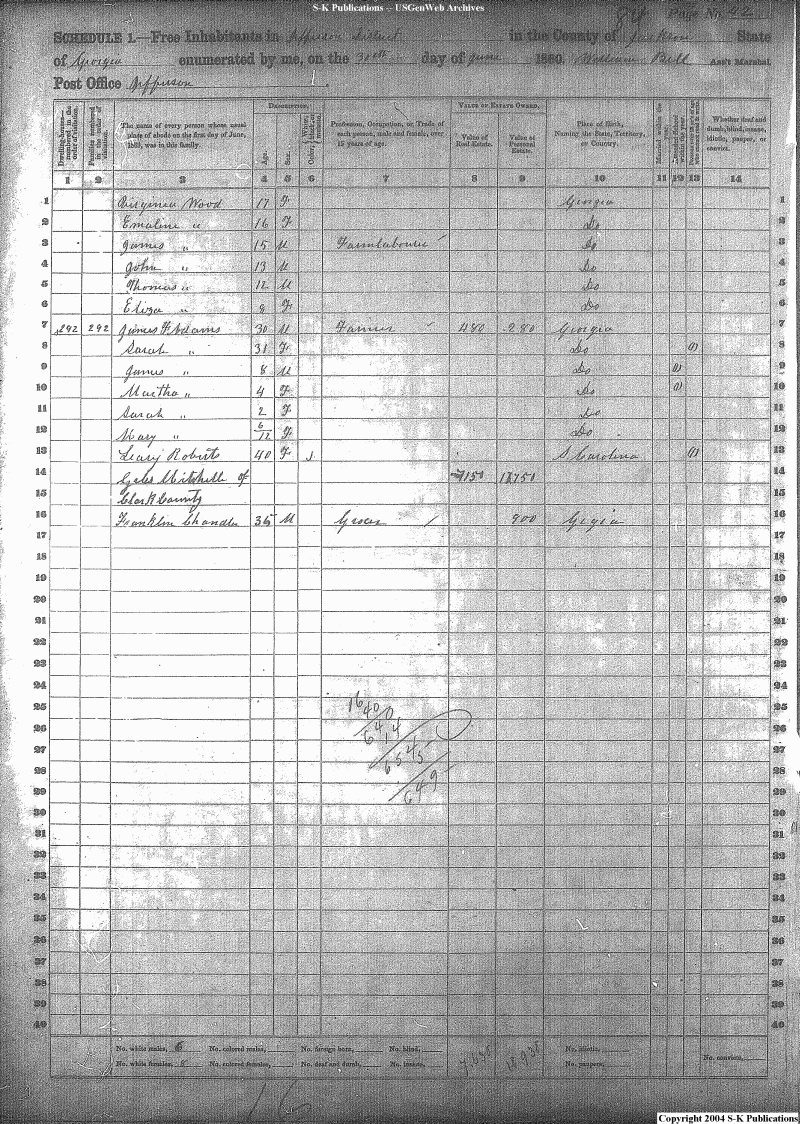 S-K Publications -- USGenWeb Archives
84 Page No. 42
SCHEDULE 1.—Free Inhabitants in Jefferson District in the County of Jackson State
of Georgia enumerated by me, on the 30th day of June 1860. William Bell Ass't Marshal
Post Office Jefferson
Dwelling-houses numbered in the order of visitation.
Families numbered in the order of visitation.
The name of every person whose usual place of abode on the first day of June, 1860, was in this family.
DESCRIPTION.
Age.
Sex.
Color, White, black, or mulatto.
Profession, Occupation, or Trade of each person, male and female, over 15 years of age.
VALUE OF ESTATE OWNED.
Value of Real Estate.
Value of Personal Estate.
Place of Birth, Naming the State, Territory, or Country.
Married within the year.
Attended School within the year.
Whether deaf and dumb, blind, insane, idiotic, pauper, or convict.
1 2 3 4 5 6 7 8 9 10 11 12 13 14
1 Virginia Wood 17 F Georgia 1
2 Emaline " 16 F Do 2
3 James " 15 M Farmlabourer Do 3
4 John " 13 M Do 4
5 Thomas " 12 M Do 5
6 Eliza " 8 F Do 6
7 292 292 James F Adams 30 M Farmer 480 280 Georgia 7
8 Sarah " 31 F Do (1) 8
9 James " 8 M Do (1) 9
10 Martha " 4 F Do (1) 10
11 Sarah " 2 F Do 11
12 Mary " 6/12 F Do 12
13 Roberts 40 F S Carolina (1) 13
14 Giles Mitchelle of 7150 14
15 Clark County 15
16 Franklin Chandler 35 M Grocer 900 16
17 17
18 18
19 19
20 20
21 21
22 22
23 23
24 24
25 1640 25
26 6414 26
27 6545 27
28 28
29 649 29
30 30
31 31
32 32
33 33
34 34
35 35
36 36
37 37
38 38
39 39
40 40
No. white males, 6 No. colored males, No. foreign born, No. blind, No. idiotic,
No. white females, 8 No. colored females, No. deaf and dumb, No. insane, No. paupers, No. convicts,
16
Copyright 2004 S-K Publications